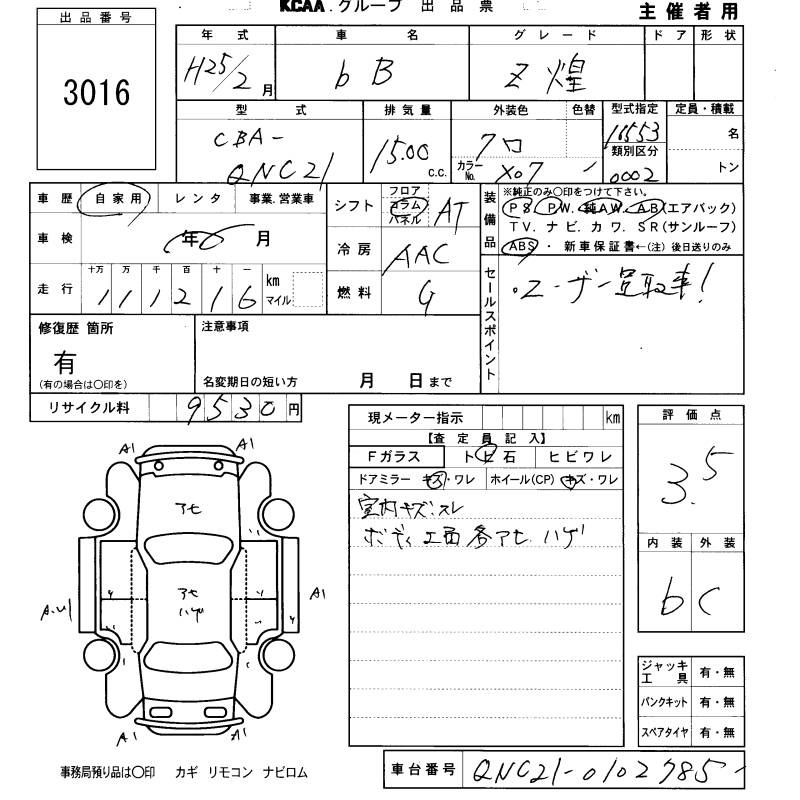 KCAA.グループ 出品票 主催者用
出品番号
3016
年式 車名 グレード ドア 形状
H25/2月 bB Z 煌
型式 排気量 外装色 色替 型式指定 定員・積載
CBA-QNC21 1500 c.c. クロ カラーNo. X07 16553 名
類別区分 0002 トン
車歴 自家用 レンタ 事業.営業車
シフト フロア コラム パネル AT
装備品 ※純正のみ○印をつけて下さい。
PS. PW. 純AW. AB(エアバック)
TV. ナビ. カワ. SR(サンルーフ)
ABS ・ 新車保証書←(注)後日送りのみ
車検 年 6 月
冷房 AAC
走行 十万 万 千 百 十 一
111216 km マイル
燃料 G
セールスポイント
・ユーザー買取車!
修復歴 箇所 注意事項
有
(有の場合は○印を) 名変期日の短い方 月 日まで
リサイクル料 9530円
現メーター指示 km
【査定員記入】
Fガラス ト ビ 石 ヒビワレ
ドアミラー キズ・ワレ ホイール(CP) キズ・ワレ
室内キズ.スレ
ボディ 工面 各アセ. ハゲ
評価点
3.5
内装 外装
b C
A1 A1
アセ
アセ
ハゲ
A.U1 A1
A1 A1
ジャッキ工具 有・無
パンクキット 有・無
スペアタイヤ 有・無
事務局預り品は○印 カギ リモコン ナビロム
車台番号 QNC21-0102785